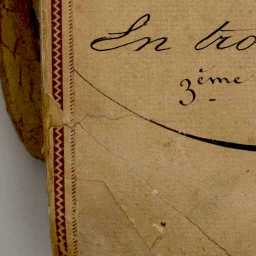 In tro
3ème